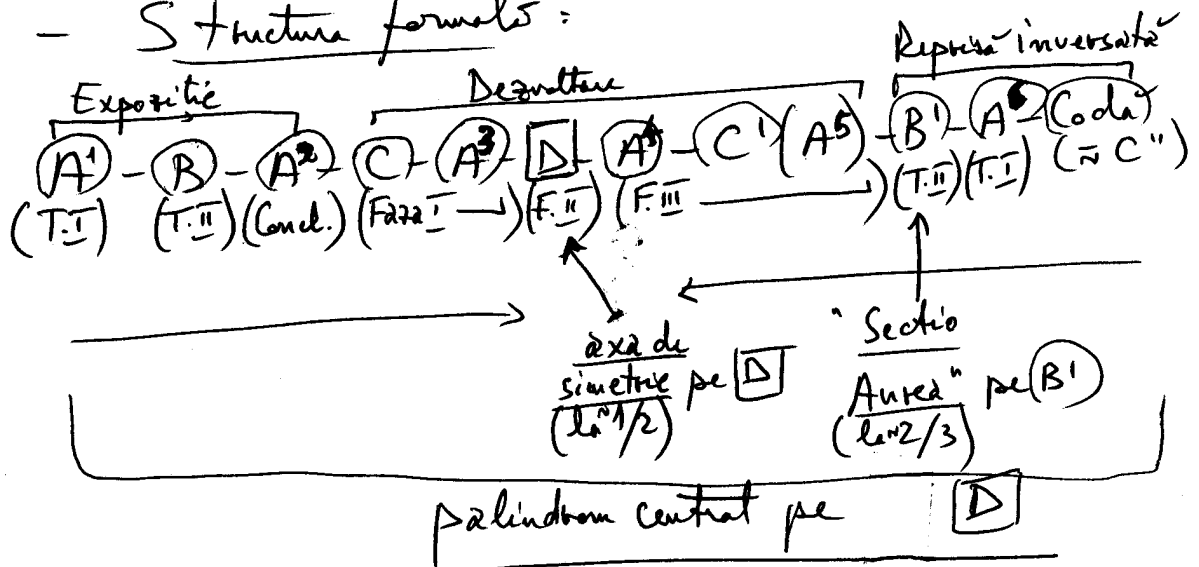 - Structura formală:
Expoziție Dezvoltare Repriză inversată
A¹ - B - A² - C - A³ - D - A⁴ - C' (A⁵) - B' - A⁶ Coda
(T.I) (T.II) (Concl.) (Faza I →) (F.II) (F.III →) (T.II) (T.I) (≈ C")
axa de "Sectio
simetrie pe D Aurea" pe B'
(la ~1/2) (la ~2/3)
palindrom central pe D